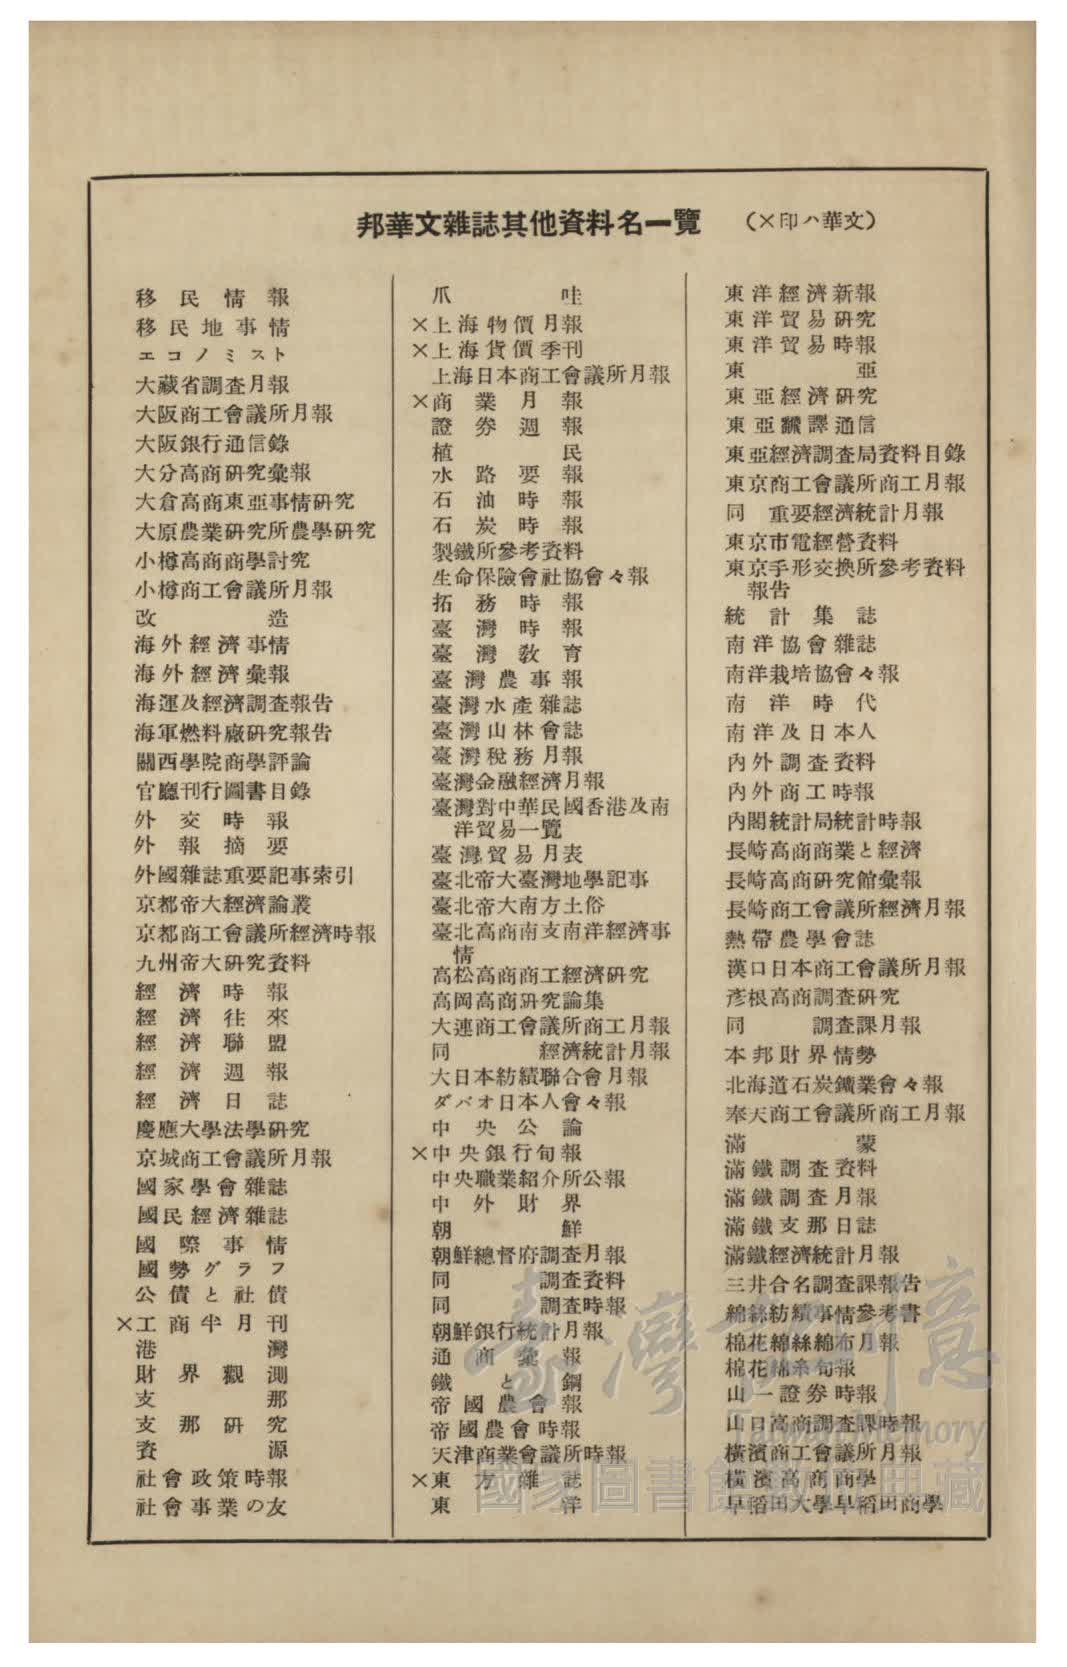 邦華文雜誌其他資料名一覽 （×印ハ華文）
移民情報
移民地事情
エコノミスト
大藏省調査月報
大阪商工會議所月報
大阪銀行通信錄
大分高商硏究彙報
大倉高商東亞事情硏究
大原農業硏究所農學硏究
小樽高商商學討究
小樽商工會議所月報
改造
海外經濟事情
海外經濟彙報
海運及經濟調査報告
海軍燃料廠硏究報告
關西學院商學評論
官廳刊行圖書目錄
外交時報
外報摘要
外國雜誌重要記事索引
京都帝大經濟論叢
京都商工會議所經濟時報
九州帝大硏究資料
經濟時報
經濟往來
經濟聯盟
經濟週報
經濟日誌
慶應大學法學硏究
京城商工會議所月報
國家學會雜誌
國民經濟雜誌
國際事情
國勢グラフ
公債と社債
×工商半月刊
港灣
財界觀測
支那
支那硏究
資源
社會政策時報
社會事業の友
爪哇
×上海物價月報
×上海貨價季刊
上海日本商工會議所月報
×商業月報
證券週報
植民
水路要報
石油時報
石炭時報
製鐵所參考資料
生命保險會社協會々報
拓務時報
臺灣時報
臺灣敎育
臺灣農事報
臺灣水產雜誌
臺灣山林會誌
臺灣稅務月報
臺灣金融經濟月報
臺灣對中華民國香港及南
洋貿易一覽
臺灣貿易月表
臺北帝大臺灣地學記事
臺北帝大南方土俗
臺北高商南支南洋經濟事
情
高松高商商工經濟硏究
高岡高商硏究論集
大連商工會議所商工月報
同 經濟統計月報
大日本紡績聯合會月報
ダバオ日本人會々報
中央公論
×中央銀行旬報
中央職業紹介所公報
中外財界
朝鮮
朝鮮總督府調査月報
同 調査資料
同 調査時報
朝鮮銀行統計月報
通商彙報
鐵と鋼
帝國農會報
帝國農會時報
天津商業會議所時報
×東方雜誌
東洋
東洋經濟新報
東洋貿易硏究
東洋貿易時報
東亞
東亞經濟硏究
東亞飜譯通信
東亞經濟調査局資料目錄
東京商工會議所商工月報
同 重要經濟統計月報
東京市電經營資料
東京手形交換所參考資料
報告
統計集誌
南洋協會雜誌
南洋栽培協會々報
南洋時代
南洋及日本人
內外調査資料
內外商工時報
內閣統計局統計時報
長崎高商商業と經濟
長崎高商硏究館彙報
長崎商工會議所經濟月報
熱帶農學會誌
漢口日本商工會議所月報
彥根高商調査硏究
同 調査課月報
本邦財界情勢
北海道石炭鑛業會々報
奉天商工會議所商工月報
滿蒙
滿鐵調査資料
滿鐵調査月報
滿鐵支那日誌
滿鐵經濟統計月報
三井合名調査課報告
綿絲紡績事情參考書
棉花綿絲綿布月報
棉花綿糸旬報
山一證券時報
山口高商調査課時報
橫濱商工會議所月報
橫濱高商商學
早稻田大學早稻田商學
臺灣記憶
Taiwan Memory
國家圖書館數位典藏